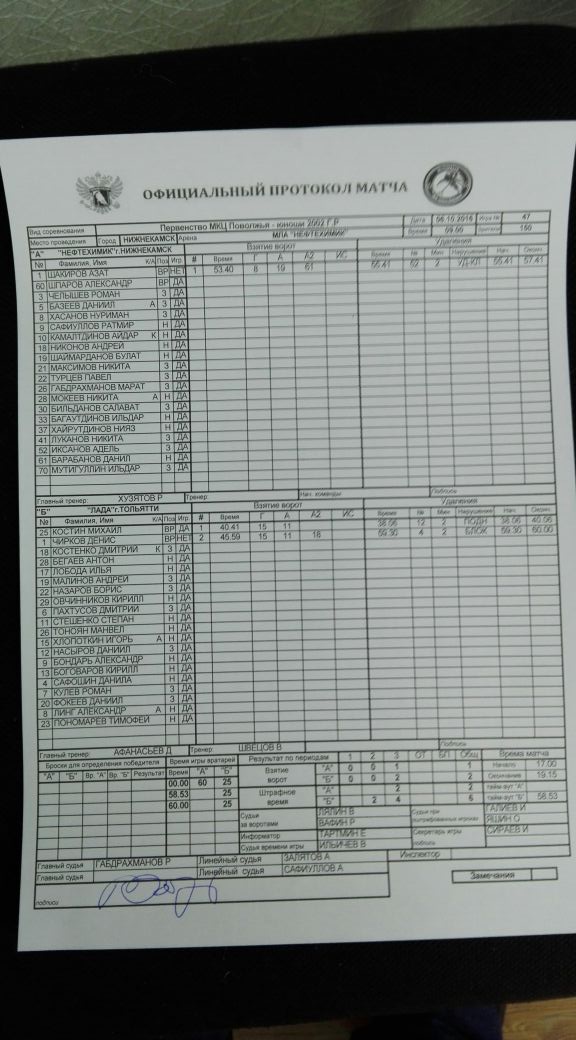 ОФИЦИАЛЬНЫЙ ПРОТОКОЛ МАТЧА
Вид соревнования Первенство МКЦ Поволжья - юноши 2002 Г.Р Дата 06.10.2016 Игра № 47
Место проведения Город НИЖНЕКАМСК Арена МЛА "НЕФТЕХИМИК" Время Зрители 150
"А" "НЕФТЕХИМИК"г.НИЖНЕКАМСК Взятие ворот Удаления
№ Фамилия, Имя К/А Поз Игр # Время Г А А2 ИС Время № Мин Нарушение Нач. Оконч.
1 ШАКИРОВ АЗАТ ВР НЕТ 1 53.40 8 19 61 55.41 52 2 УД-КЛ 55.41 57.41
60 ШПАРОВ АЛЕКСАНДР ВР ДА
3 ЧЕЛЫШЕВ РОМАН З ДА
5 БАЗЕЕВ ДАНИИЛ А З ДА
8 ХАСАНОВ НУРИМАН З ДА
9 САФИУЛЛОВ РАТМИР Н ДА
10 КАМАЛТДИНОВ АЙДАР К Н ДА
18 НИКОНОВ АНДРЕЙ Н ДА
19 ШАЙМАРДАНОВ БУЛАТ Н ДА
21 МАКСИМОВ НИКИТА З ДА
22 ТУРЦЕВ ПАВЕЛ З ДА
26 ГАБДРАХМАНОВ МАРАТ З ДА
28 МОКЕЕВ НИКИТА А Н ДА
30 БИЛЬДАНОВ САЛАВАТ З ДА
33 БАГАУТДИНОВ ИЛЬДАР Н ДА
37 ХАЙРУТДИНОВ НИЯЗ Н ДА
41 ЛУКАНОВ НИКИТА З ДА
52 ИКСАНОВ АДЕЛЬ З ДА
61 БАРАБАНОВ ДАНИЛ Н ДА
70 МУТИГУЛЛИН ИЛЬДАР З ДА
Главный тренер: ХУЗЯТОВ Р Тренер: Нач. команды Подпись
"Б" "ЛАДА"г.ТОЛЬЯТТИ Взятие ворот Удаления
№ Фамилия, Имя К/А Поз Игр # Время Г А А2 ИС Время № Мин Нарушение Нач. Оконч.
25 КОСТИН МИХАИЛ ВР ДА 1 40.41 15 11 38.06 12 2 ПОДН 38.06 40.06
1 ЧИРКОВ ДЕНИС ВР НЕТ 2 45.59 15 11 18 59.30 4 2 БЛОК 59.30 60.00
18 КОСТЕНКО ДМИТРИЙ К З ДА
28 БЕГАЕВ АНТОН Н ДА
17 ЛОБОДА ИЛЬЯ Н ДА
19 МАЛИНОВ АНДРЕЙ З ДА
22 НАЗАРОВ БОРИС З ДА
29 ОВЧИННИКОВ КИРИЛЛ Н ДА
6 ПАХТУСОВ ДМИТРИЙ З ДА
11 СТЕШЕНКО СТЕПАН Н ДА
26 ТОНОЯН МАНВЕЛ Н ДА
15 ХЛОПОТКИН ИГОРЬ А Н ДА
12 НАСЫРОВ ДАНИИЛ З ДА
9 БОНДАРЬ АЛЕКСАНДР Н ДА
13 БОГОВАРОВ КИРИЛЛ Н ДА
4 САФОШИН ДАНИЛА Н ДА
7 КУЛЕВ РОМАН З ДА
20 ФОКЕЕВ ДАНИИЛ З ДА
8 ЛИНГ АЛЕКСАНДР А Н ДА
23 ПОНОМАРЕВ ТИМОФЕЙ Н ДА
Главный тренер: АФАНАСЬЕВ Д Тренер: ШВЕЦОВ В Подпись
Броски для определения победителя Время игры вратарей Результат по периодам 1 2 3 ОТ БП Общ Время матча
"А" "Б" Вр. "А" Вр. "Б" Результат Время "А" "Б" Взятие ворот "А" 0 0 1 1 Начало 17.00
00.00 60 25 "Б" 0 0 2 2 Окончание 19.15
58.53 25 Штрафное время "А" 2 2 тайм-аут "А"
60.00 25 "Б" 2 4 6 тайм-аут "Б" 58.53
Судьи за воротами ЛЯЛИН В Судьи при оштрафованных игроках ГАЛИЕВ И
ВАФИН Р ЯШИН О
Информатор ТАРТМИН Е Секретарь игры СИРАЕВ И
Судья времени игры ИЛЬИЧЕВ В подпись
Главный судья ГАБДРАХМАНОВ Р Линейный судья ЗАЛЯТОВ А Инспектор
Главный судья Линейный судья САФИУЛЛОВ А
подписи Замечания